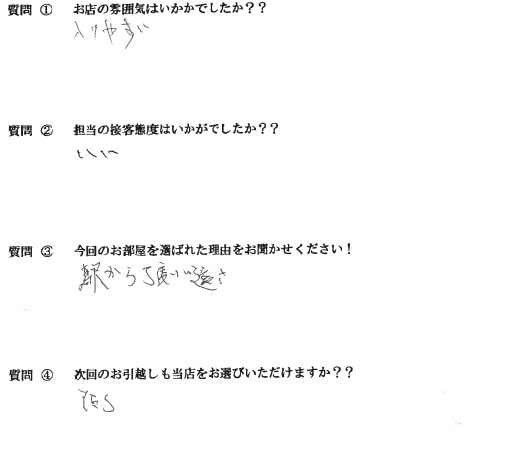 質問 ① お店の雰囲気はいかかでしたか??
入りやすい
質問 ② 担当の接客態度はいかがでしたか??
いい
質問 ③ 今回のお部屋を選ばれた理由をお聞かせください!
駅から5良い遠さ
質問 ④ 次回のお引越しも当店をお選びいただけますか??
Yes